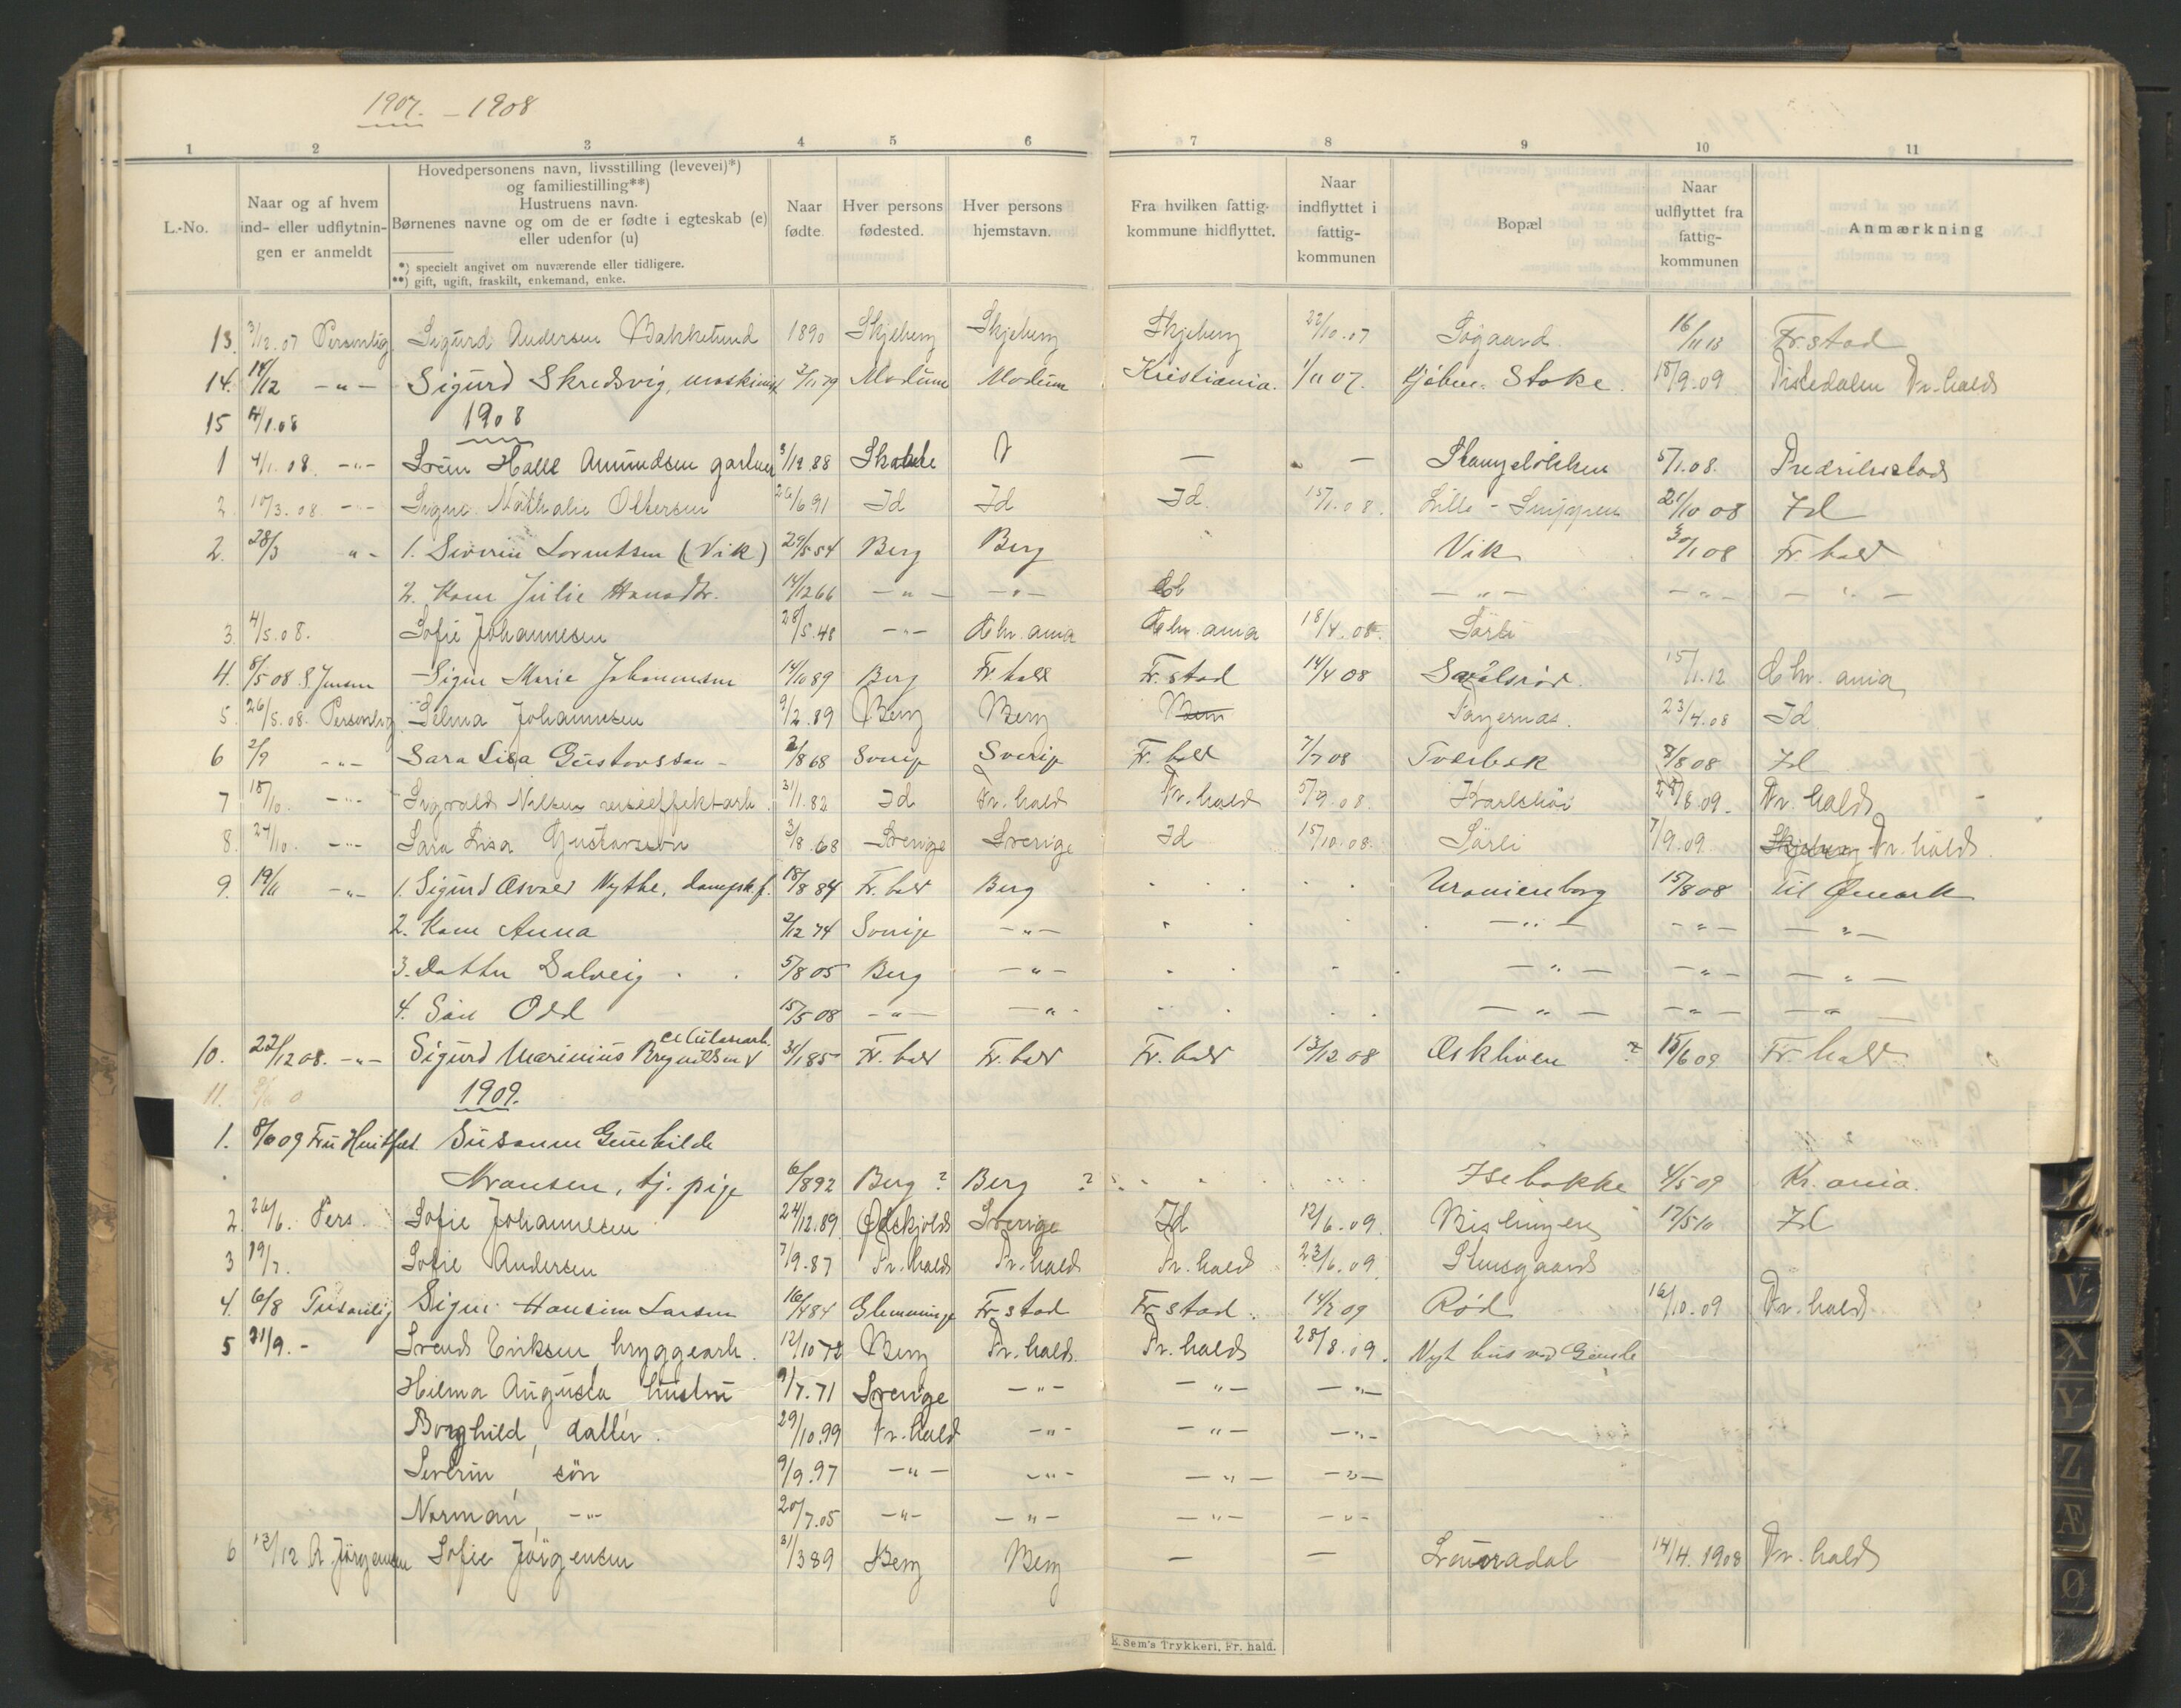 1907. - 1908
1 2 3 4 5 6 7 8 9 10 11
L.-No.
Naar og af hvem ind- eller udflytnin- gen er anmeldt
Hovedpersonens navn, livsstilling (levevei)*)
og familiestilling**)
Hustruens navn.
Børnenes navne og om de er fødte i egteskab (e)
eller udenfor (u)
*) specielt angivet om nuværende eller tidligere.
**) gift, ugift, fraskilt, enkemand, enke.
Naar fødte
Hver persons fødested.
Hver persons hjemstavn.
Fra hvilken fattig- kommune hidflyttet.
Naar indflyttet i fattig- kommunen
Bopæl
Naar udflyttet fra fattig- kommunen
Anmærkning
13. 3/12.07 Personlig Sigurd Andersen Bakkelund 1890 Skjeberg Skjeberg Skjeberg 22/10.07 Sogaard. 16/11 13 Fr.stad
14. 14/12 -"- Sigurd Skredsvig, maskinist 2/11 79 Modum Modum Kristiania. 1/11 07. Stoke. 18/9.09. Tistedalen Fr.hald
15 4/1.08 1908
1 4/1.08. -"- Amundsen gartner 3/12.88 - - 5/1.08. Fredriksstad
2. 10/3.08 -"- Signe Nathalie Ottersen 26/6 91 Id Id Id. 15/1.08. Lille- 21/10 08 Id
2. 28/3 "- 1. Severin Lorentsen (Vik) 29/5 54 Berg Berg Vik 30/1 08 Fr. hald
2. Kone Julie Hansdtr. 14/12 66 -"- -"- -"- -"- -"-
3. 4/5.08. Sofie Johannesen 28/5.48 -"- Chr.ania Chr.ania 18/4.08. Sørli
4. 8/5 08 S. Jensen Signe Marie Johannesen 14/10 89 Berg Fr. hald Fr. stad 14/4 08 15/1.12 Chr.ania
5. 26/5.08. Personlig Selma Johannesen 9/2.89 Berg Berg Tangernas. 23/4.08 Id
6 2/9 -"- Sara Lisa Gustavsson - 2/8 68 Sverige Sverige Fr. hald 7/7 08 Tverbek 8/8 08 Id
7 18/10. -"- Sigvald Nilsen reiseeffektarb. 31/1.82 Id Fr. hald Fr. hald 5/9.08. Karlshøi 28/8.09. Fr. hald
8. 24/10. -"- Sara Lisa Gustavson 3/8.68 Sverige Sverige Id 15/10.08. Sørli 7/9.09. Skjeberg Fr. hald.
9. 19/11 -"- 1. Sigurd Osvald Nythe, 18/8 84 Fr. hald Berg Uranienborg 15/8 08 til Ømark
2. Kone Anna 2/12 74 Sverige -"- -"- -"- -"-
3. Datter Solveig 5/8 05 Berg -"- -"- -"- -"-
4. Søn Odd 15/5 08 -"- -"- -"- -"- -"-
10. 22/12 08. -"- Sigurd Marinius Brynildsen cellulosearb. 31/1 85 Fr. hald Fr. hald Fr. hald 13/12 08 Eskliven ? 15/6 09 Fr. hald
11. 1909.
1. 09 Fru Huitfeldt Susanne Gunhilde
Hansen, tj. pige 6/8 92 Berg ? Berg ? Isebakke 4/5 09 Kr. ania.
2. 26/6. Pers. Sofie Johannesen 24/12.89. Ødskjold Sverige Id 12/6.09. Bislingen 17/5 10 Id
3 19/7. Sofie Andersen 7/9.87 Fr. hald Fr. hald Fr. hald 23/6.09. Stumgaard
4. 6/8 Personlig Signe Hansine Larsen 16/4 84 Glemminge Fr. stad Fr. stad. 14/7 09 Rød 16/10.09 Fr. hald
5 21/9.- Svend Eriksen, bryggearb. 12/10 72 Berg Fr. hald. Fr. hald 28/8.09. Nyt hus ved
Hilma Augusta, hustru 9/7.71 Sverige -"- -"- -"-
Borghild, datter. 29/10.99 Fr. hald -"- -"- -"-
Severin, søn 9/9.97 -"- -"- -"- -"-
Norman, -"- 20/7.05 -"- -"- -"- -"-
6 12/12 A. Jørgensen Sofie Jørgensen 31/3 89 Berg Berg - - 14/4. 1908 Fr. hald
E. Sem's Trykkeri, Fr. hald.
V
X
Y
Z
Æ
Ø